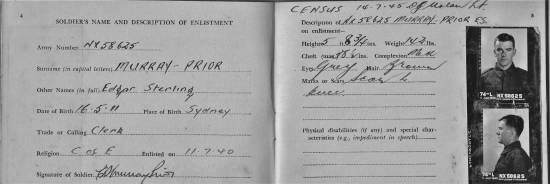 4
SOLDIER'S NAME AND DESCRIPTION OF ENLISTMENT
Army Number NX58625
Surname (in capital letters) MURRAY-PRIOR
Other Names (in full) Edgar Sterling
Date of Birth 16.5.11 Place of Birth Sydney
Trade or Calling Clerk
Religion C of E Enlisted on 11-7-40
Signature of Soldier
CENSUS 14-7-45
5
Description of NX58625 MURRAY-PRIOR ES.
on enlistment—
Height 5 ft. 8 3/4 ins. Weight 142 lbs.
Chest ins. Complexion Med
Eyes Grey Hair Brown
Marks or Scars Scar L.
knee.
Physical disabilities (if any) and special char-
acteristics (e.g., impediment in speech)
74-L NX58625
74-L NX58625